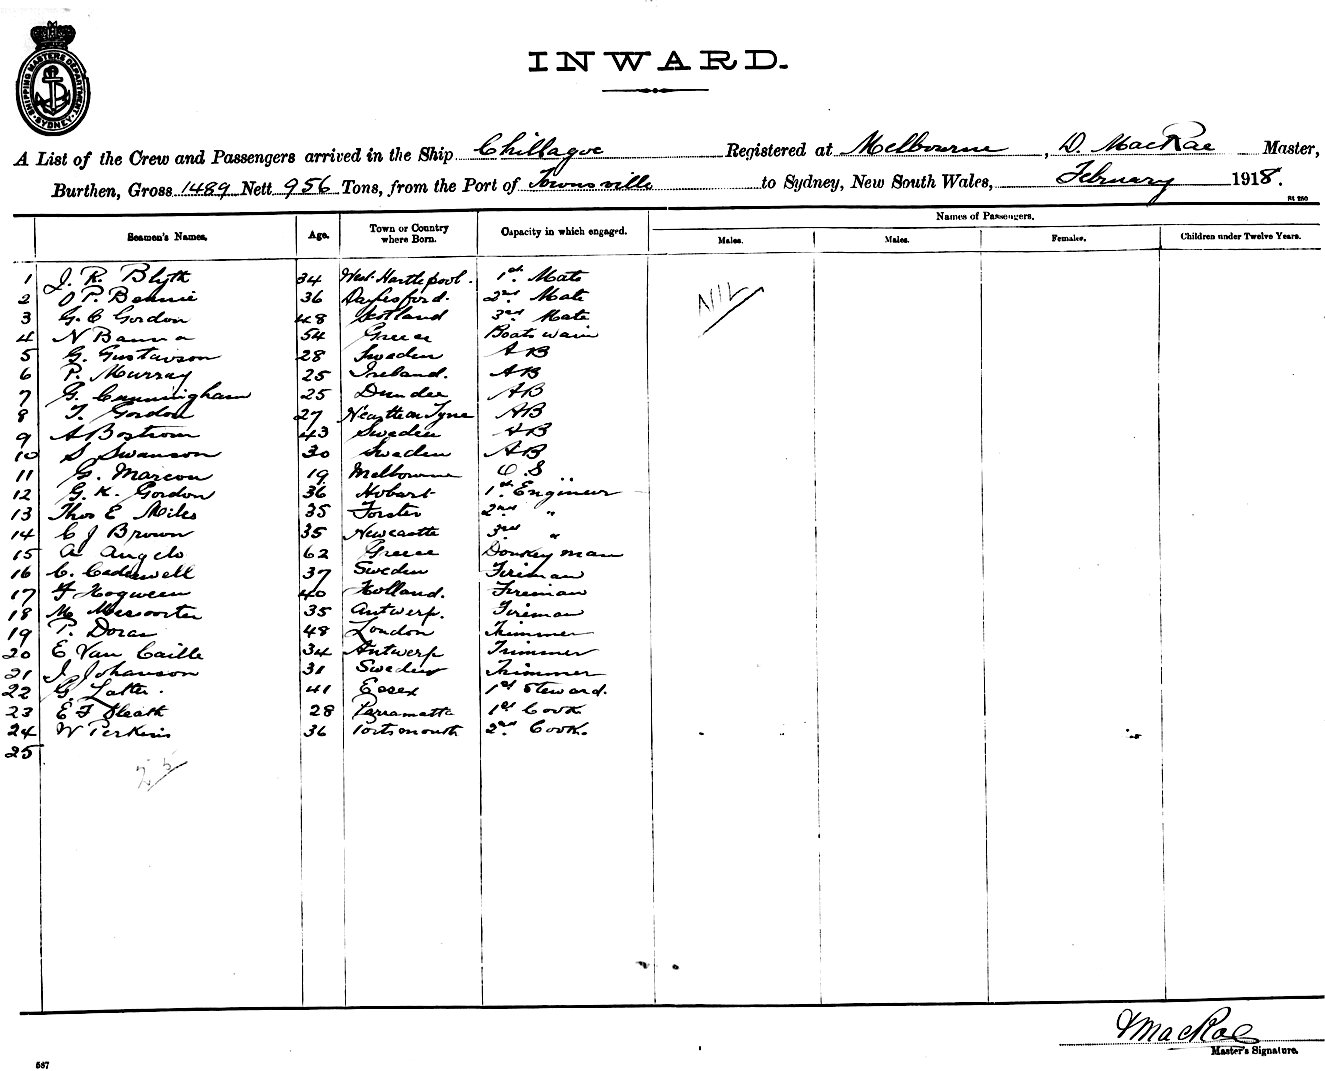 SHIPPING MASTERS DEPARTMENT SYDNEY
INWARD.
A List of the Crew and Passengers arrived in the Ship Chillagoe Registered at Melbourne, D. MacRae Master,
Burthen, Gross 1489 Nett 956 Tons, from the Port of Townsville to Sydney, New South Wales, February 1918.
Seamen's Names. Age. Town or Country where Born. Capacity in which engaged. Names of Passengers.
Males. Males. Females. Children under Twelve Years.
1 J. R. Blyth 34 West Hartlepool. 1st. Mate
NIL
2 O P. Bennie 36 Daylesford. 2nd. Mate
3 G. C Gordon 48 Scotland 3rd. Mate
4 N Banna 54 Greece Boatswain
5 G. Gustavson 28 Sweden AB
6 P. Murray 25 Ireland. AB
7 G. Cunningham 25 Dundee AB
8 T. Gordon 27 Newcastle on Tyne AB
9 A Bostrom 43 Sweden AB
10 S Swanson 30 Sweden AB
11 G. Marcou 19 Melbourne O.S
12 G. K. Gordon 36 Hobart 1st. Engineer
13 Thos E Miles 35 Forster 2nd "
14 C J Brown 35 Newcastle 3rd "
15 A Angelo 62 Greece Donkeyman
16 C. 37 Sweden Fireman
17 F Hogween 40 Holland. Fireman
18 M 35 Antwerp. Fireman
19 P. Doran 48 London Trimmer
20 E Van Caille 34 Antwerp Trimmer
21 J Johanson 31 Sweden Trimmer
22 G. Latter. 41 Essex 1st Steward.
23 E F Sleath 28 Parramatta 1st Cook
24 W Perkins 36 Portsmouth 2nd. Cook.
25
25
MacRae
Master's Signature.
587